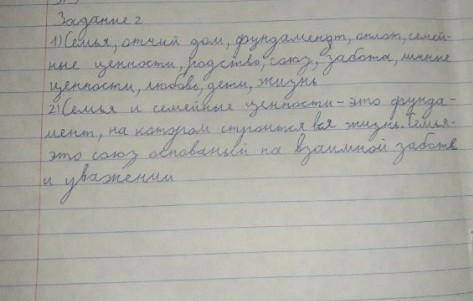 Задание 2
1) Семья, отчий дом, фундамендт, оплот, семей-
ные ценности, родство, союз, забота, личные
ценности, любовь, дети, жизнь
2) Семья и семейные ценности - это фунда-
мент, на котором строится вся жизнь. Семья-
это союз оснований на взаимной заботе
и уважении